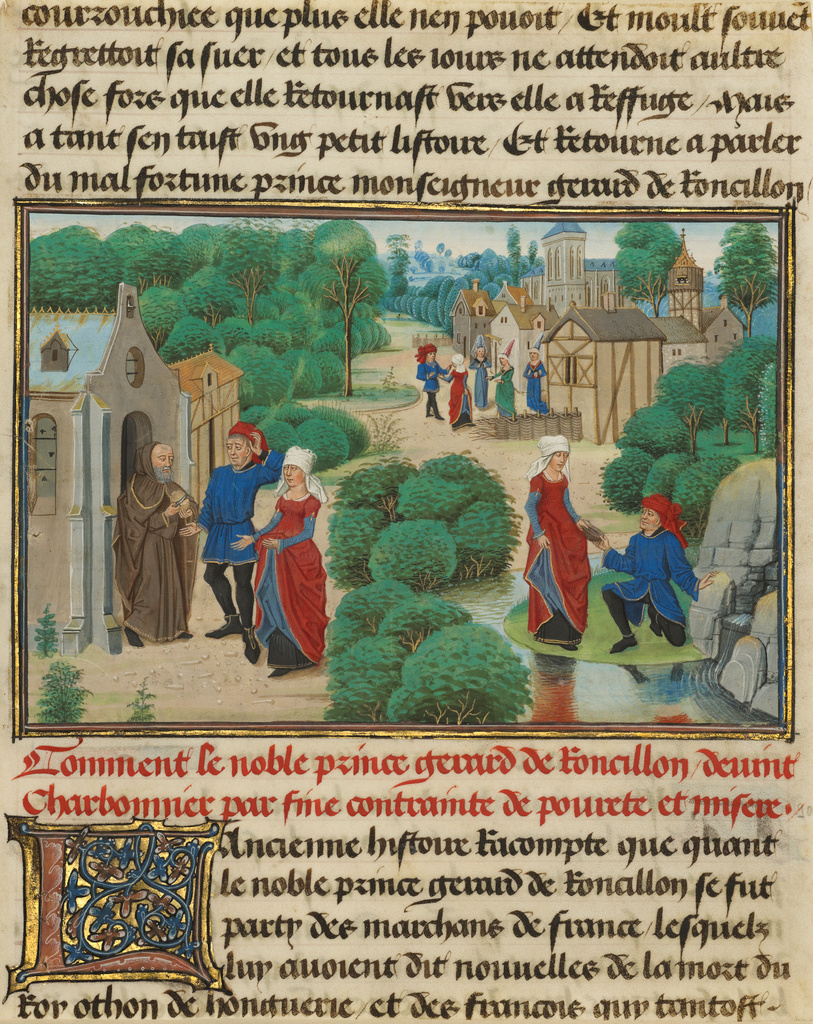 courzouchiee que plus elle nen pouoit / Et moult souuet
Regrettoit sa suer / et tous les iours ne attendoit aultre
chose fors que elle Retournast vers elle a Reffuge / Mais
a tant sen taist vng petit listoire / Et Retourne a parler
du mal fortune prince monseigneur gerard de Roncillon /
Comment le noble prince gerard de Roncillon / deuint
Charbonnier par fine contrainte de pourete et misere .
LAncienne histoire Racompte que quant
le noble prince gerard de Roncillon se fut
party des marchans de france / lesquelz
luy auoient dit nouuelles de la mort du
Roy othon de honguerie / et des francois quy tantost -